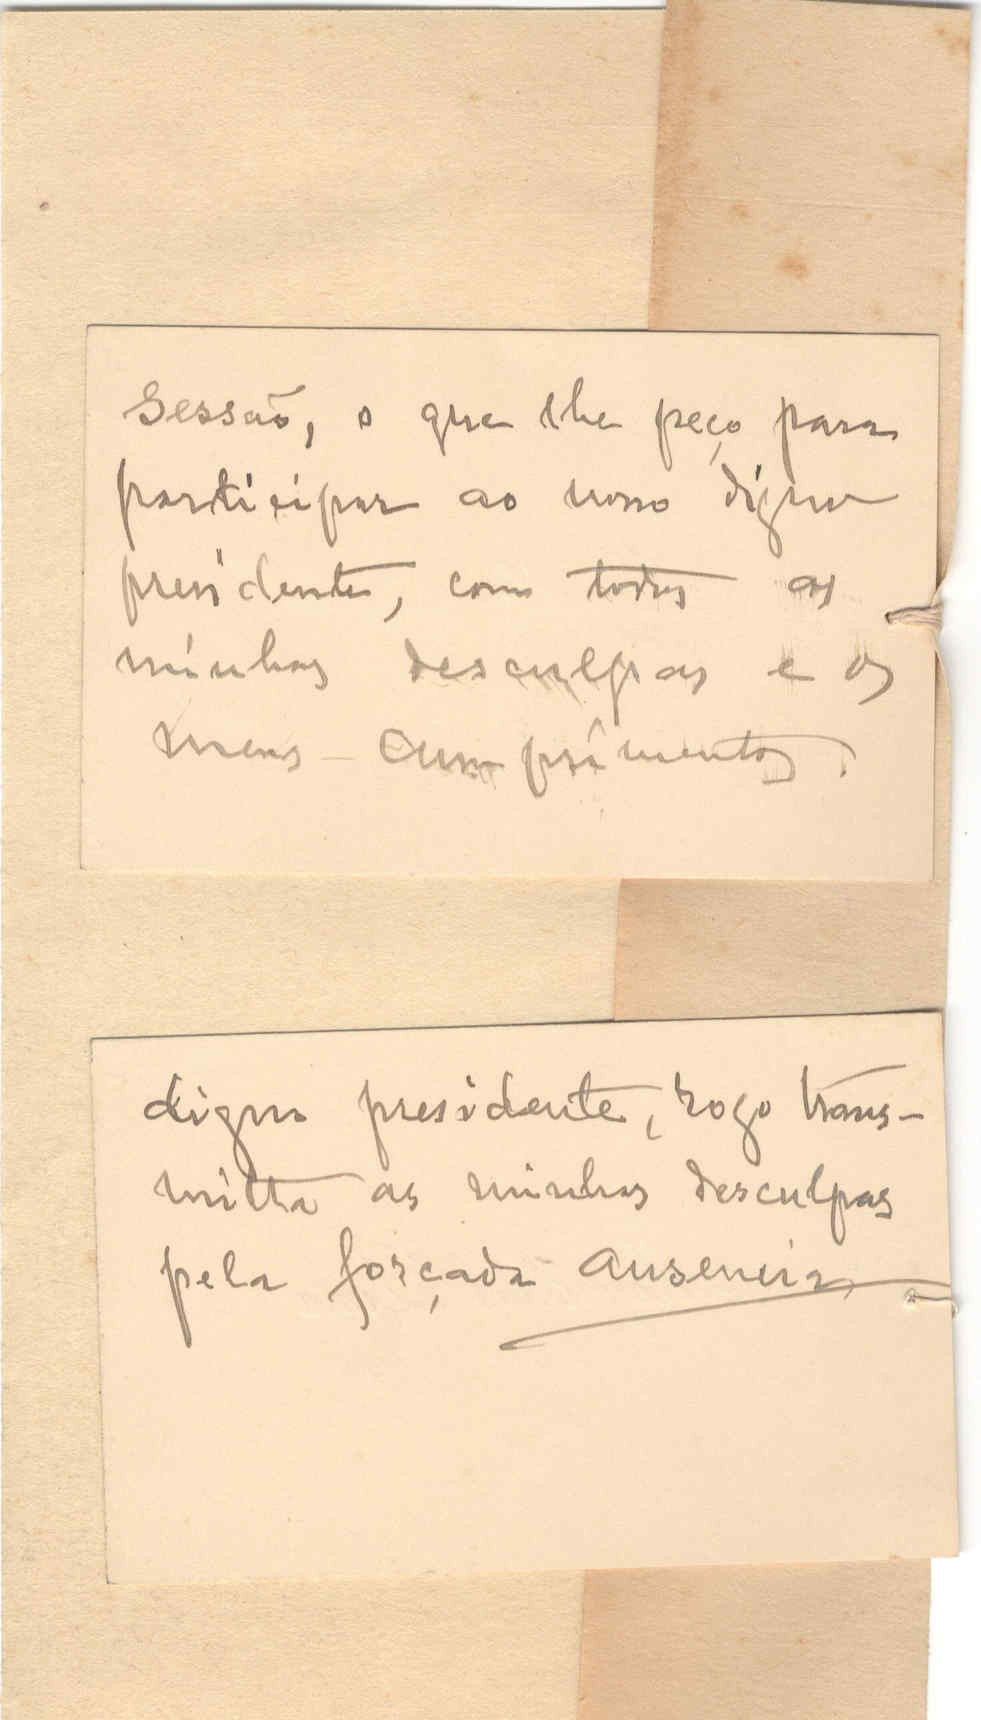 sessão, o que lhe peço para
participar ao nosso digno
presidente, com todas as
minhas desculpas e os
meus cumprimentos.
digno presidente, rogo trans-
mitta as minhas desculpas
pela forçada ausencia